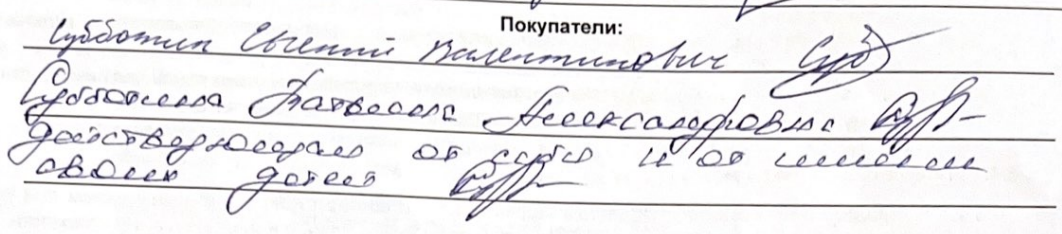 Покупатели:
Субботин Евгений Валентинович
Субботина Татьяна Александровна
действующая от себя и от имени
своих детей